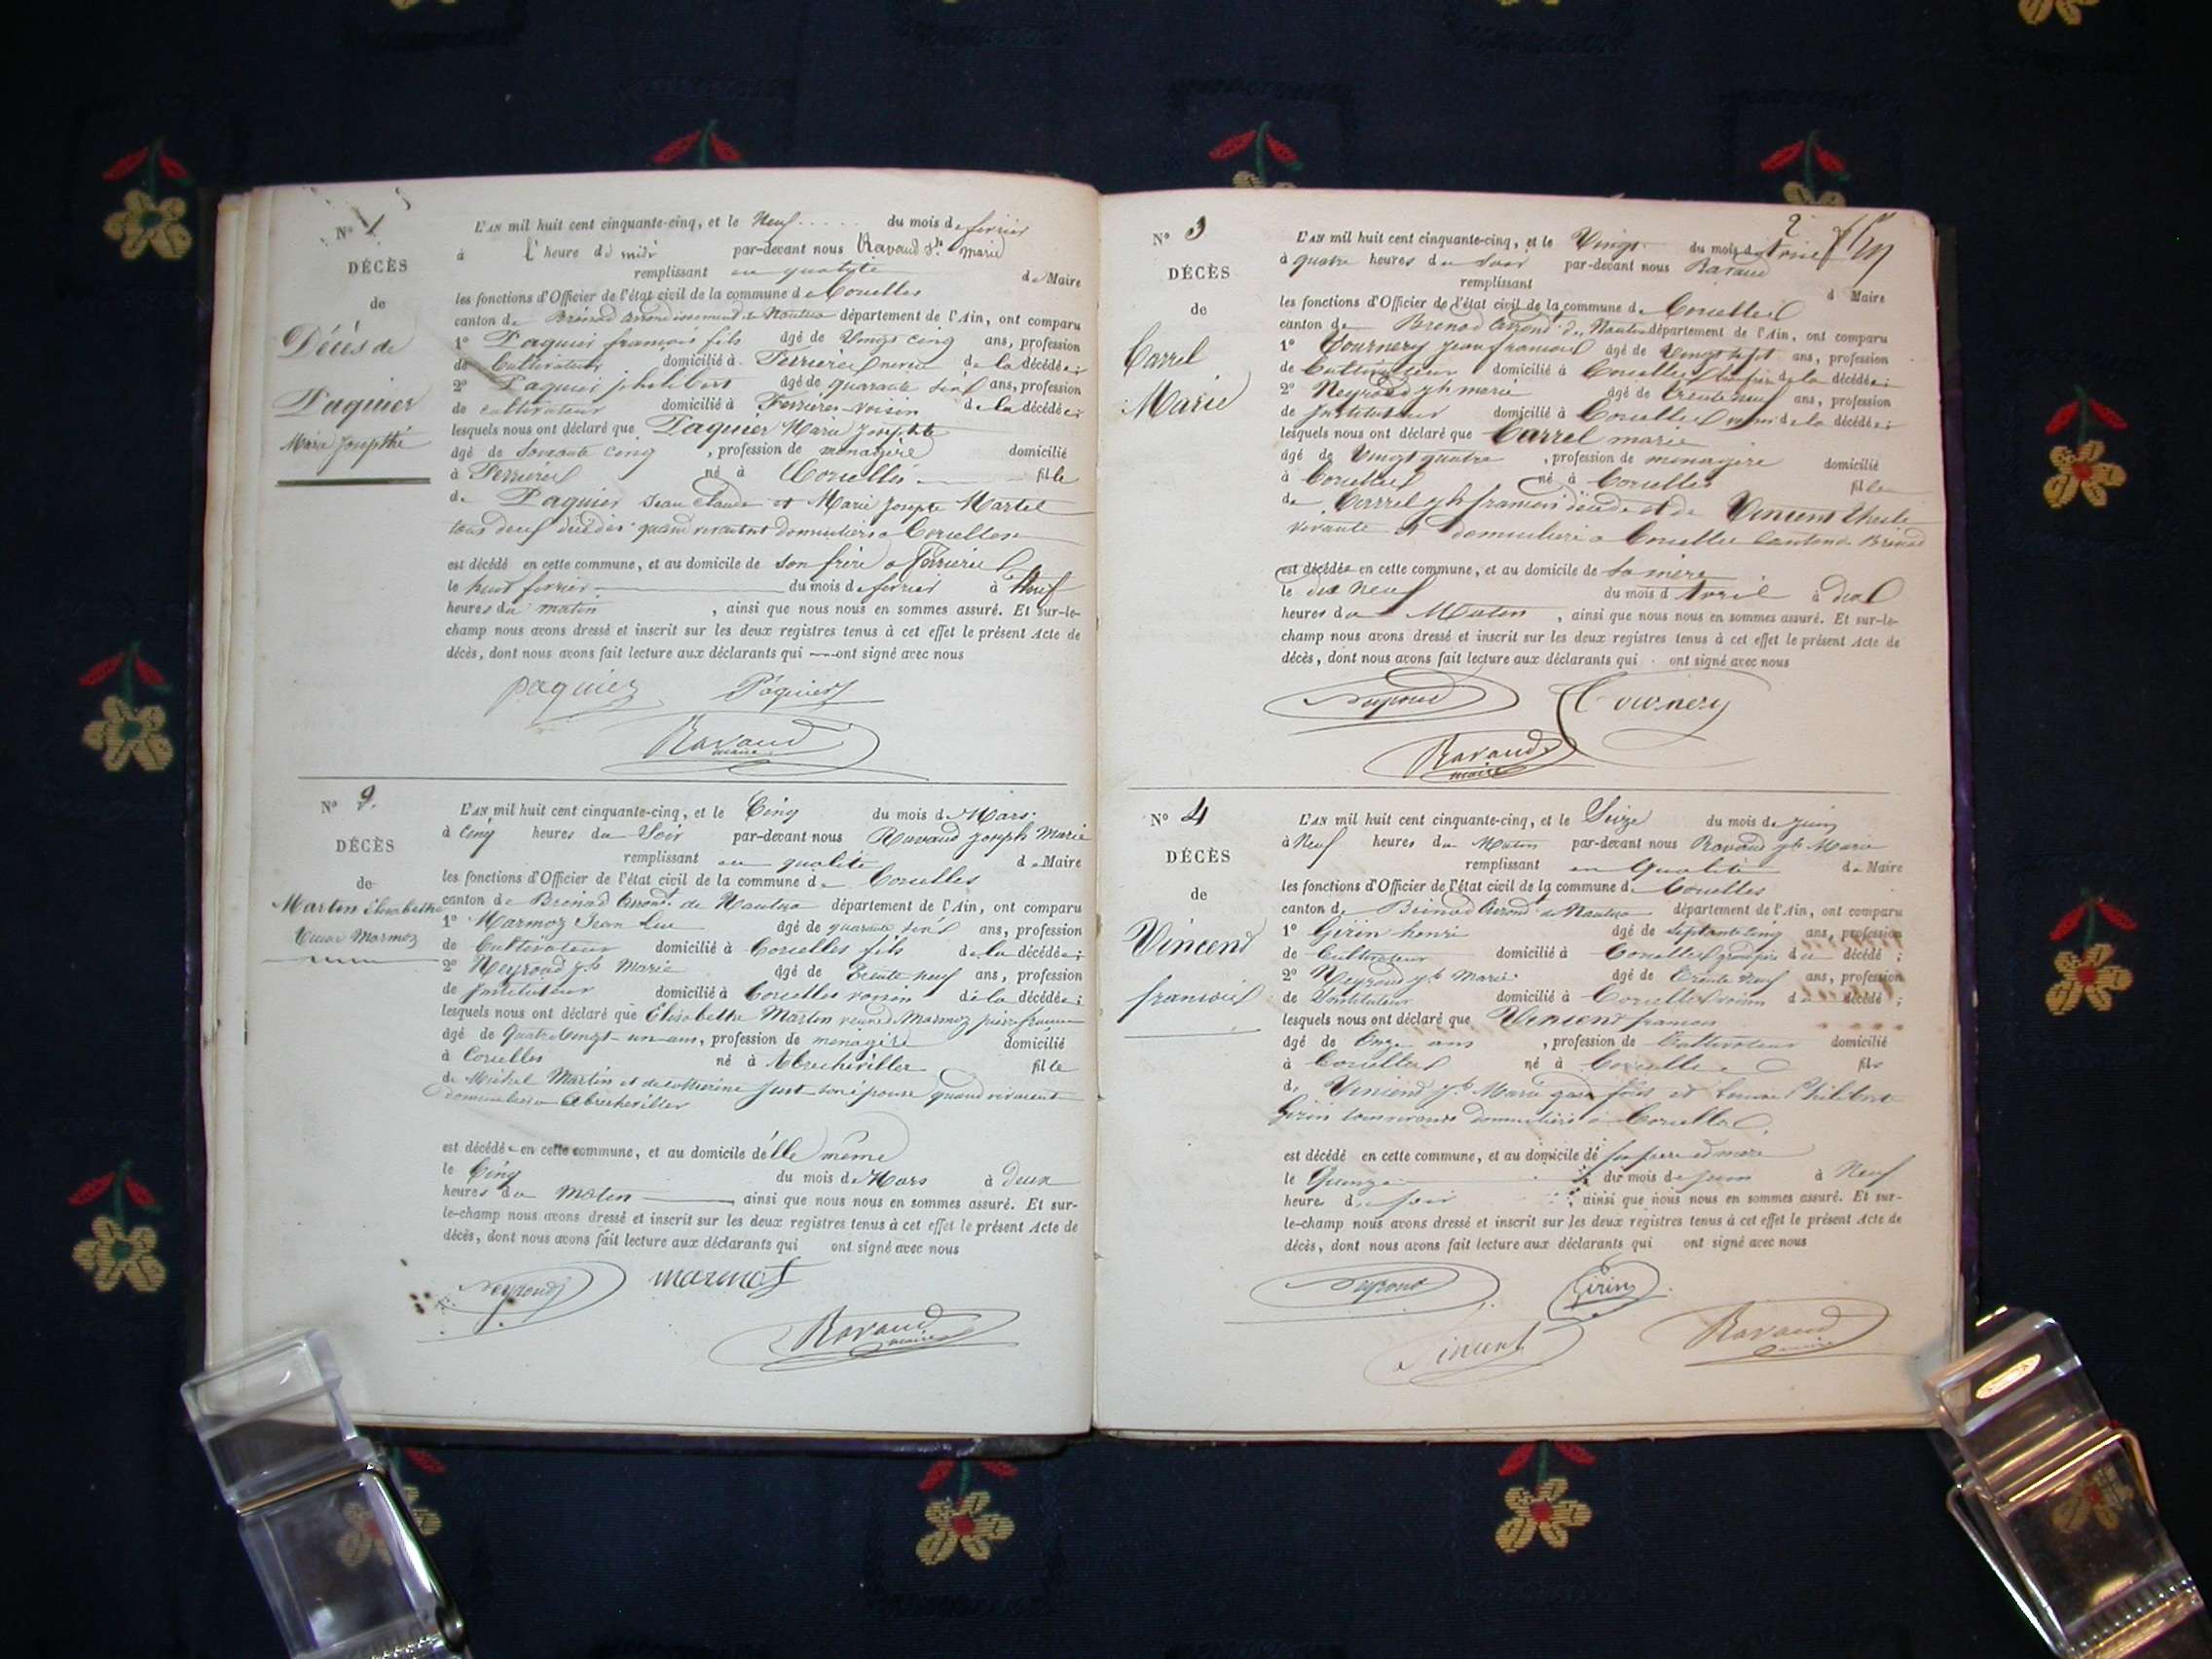 N° 1
DÉCÈS
de
Décès de
Paquier
Marie Josephte
L'AN mil huit cent cinquante-cinq, et le Neuf du mois de février
à l'heure de midi par-devant nous Ravaud Jh marie
remplissant en qualité de Maire
les fonctions d'Officier de l'état civil de la commune de Corcelles
canton de Brénod arrondissement de Nantua département de l'Ain, ont comparu
1° Paquier francois fils âgé de Vingt cinq ans, profession
de Cultivateur domicilié à Ferrières neveu de la décédée;
2° Paquier philibert âgé de quarante six ans, profession
de cultivateur domicilié à Ferrières voisin de la décédée;
lesquels nous ont déclaré que Paquier Marie Josephte
âgé de soixante cinq , profession de ménagère domicilié
à Ferrières né à Corcelles fille
de Paquier Jean Claude et Marie Josepte Martel
tous deux décédés quand vivaient domiciliés a Corcelles
est décédé en cette commune, et au domicile de son frère a ferrières
le huit février du mois de février à Neuf
heures du matin , ainsi que nous nous en sommes assuré. Et sur-le-
champ nous avons dressé et inscrit sur les deux registres tenus à cet effet le présent Acte de
décès, dont nous avons fait lecture aux déclarants qui ont signé avec nous
paquier Paquier
Ravaud
maire
N° 2.
DÉCÈS
de
Martin Elisabethe
Veuve Marmoz
L'AN mil huit cent cinquante-cinq, et le Cinq du mois de Mars
à cinq heures du Soir par-devant nous Ravaud Joseph Marie
remplissant en qualité de Maire
les fonctions d'Officier de l'état civil de la commune de Corcelles
canton de Brénod Arrond.t de Nantua département de l'Ain, ont comparu
1° Marmoz Jean Luc âgé de quarante six ans, profession
de Cultivateur domicilié à Corcelles fils de la décédée;
2° Neyroud Jh Marie âgé de Trente neuf ans, profession
de Instituteur domicilié à Corcelles voisin de la décédée;
lesquels nous ont déclaré que Elisabethe Martin veuve Marmoz pierre
âgé de Quatre vingt un ans, profession de ménagère domicilié
à Corcelles né à Abrechviller fille
de Michel Martin et de catherine Just son épouse quand vivaient
est décédée en cette commune, et au domicile d'elle même
le Cinq du mois de Mars à deux
heures du Matin ainsi que nous nous en sommes assuré. Et sur-
le-champ nous avons dressé et inscrit sur les deux registres tenus à cet effet le présent Acte de
décès, dont nous avons fait lecture aux déclarants qui ont signé avec nous
Neyroud marmoz
Ravaud
maire
2
N° 3
DÉCÈS
de
Carrel
Marie
L'AN mil huit cent cinquante-cinq, et le Vingt du mois d'Avril
à quatre heures du Soir par-devant nous Ravaud
remplissant d Maire
les fonctions d'Officier de l'état civil de la commune de Corcelles
canton de Brenod Arrond.t de Nantua département de l'Ain, ont comparu
1° Tournery Jean francois âgé de Vingt sept ans, profession
de Cultivateur domicilié à Corcelles de la décédée;
2° Neyroud Jh marie âgé de trente neuf ans, profession
de Instituteur domicilié à Corcelles voisin de la décédée;
lesquels nous ont déclaré que Carrel marie
âgé de Vingt quatre , profession de menagère domicilié
à Corcelles né à Corcelles fille
de Carrel Jh francois décédé et de Vincent
vivante et domiciliée a Corcelles Canton de Brénod
est décédée en cette commune, et au domicile de sa mère
le dix Neuf du mois d'Avril à deux
heures du Matin , ainsi que nous nous en sommes assuré. Et sur-le-
champ nous avons dressé et inscrit sur les deux registres tenus à cet effet le présent Acte de
décès, dont nous avons fait lecture aux déclarants qui ont signé avec nous
Neyroud Tournery
Ravaud
maire
N° 4
DÉCÈS
de
Vincend
francois
L'AN mil huit cent cinquante-cinq, et le Seize du mois de Juin
à Neuf heures du Matin par-devant nous Ravaud Jh Marie
remplissant en Qualité de Maire
les fonctions d'Officier de l'état civil de la commune de Corcelles
canton de Brénod Arrond.t de Nantua département de l'Ain, ont comparu
1° Girin henri âgé de septante cinq ans, profession
de Cultivateur domicilié à Corcelles du décédé;
2° Neyroud Jh Marie âgé de Trente Neuf ans, profession
de Instituteur domicilié à Corcelles voisin du décédé;
lesquels nous ont déclaré que Vincend francois
âgé de Onze ans , profession de Cultivateur domicilié
à Corcelles né à Corcelles fils
de Vincend Jh Marie et Philiberte
Girin domiciliés à Corcelles
est décédé en cette commune, et au domicile de son pere et mere
le Quinze du mois de Juin à Neuf
heures du soir , ainsi que nous nous en sommes assuré. Et sur-
le-champ nous avons dressé et inscrit sur les deux registres tenus à cet effet le présent Acte de
décès, dont nous avons fait lecture aux déclarants qui ont signé avec nous
Neyroud Girin
Vincent Ravaud
maire